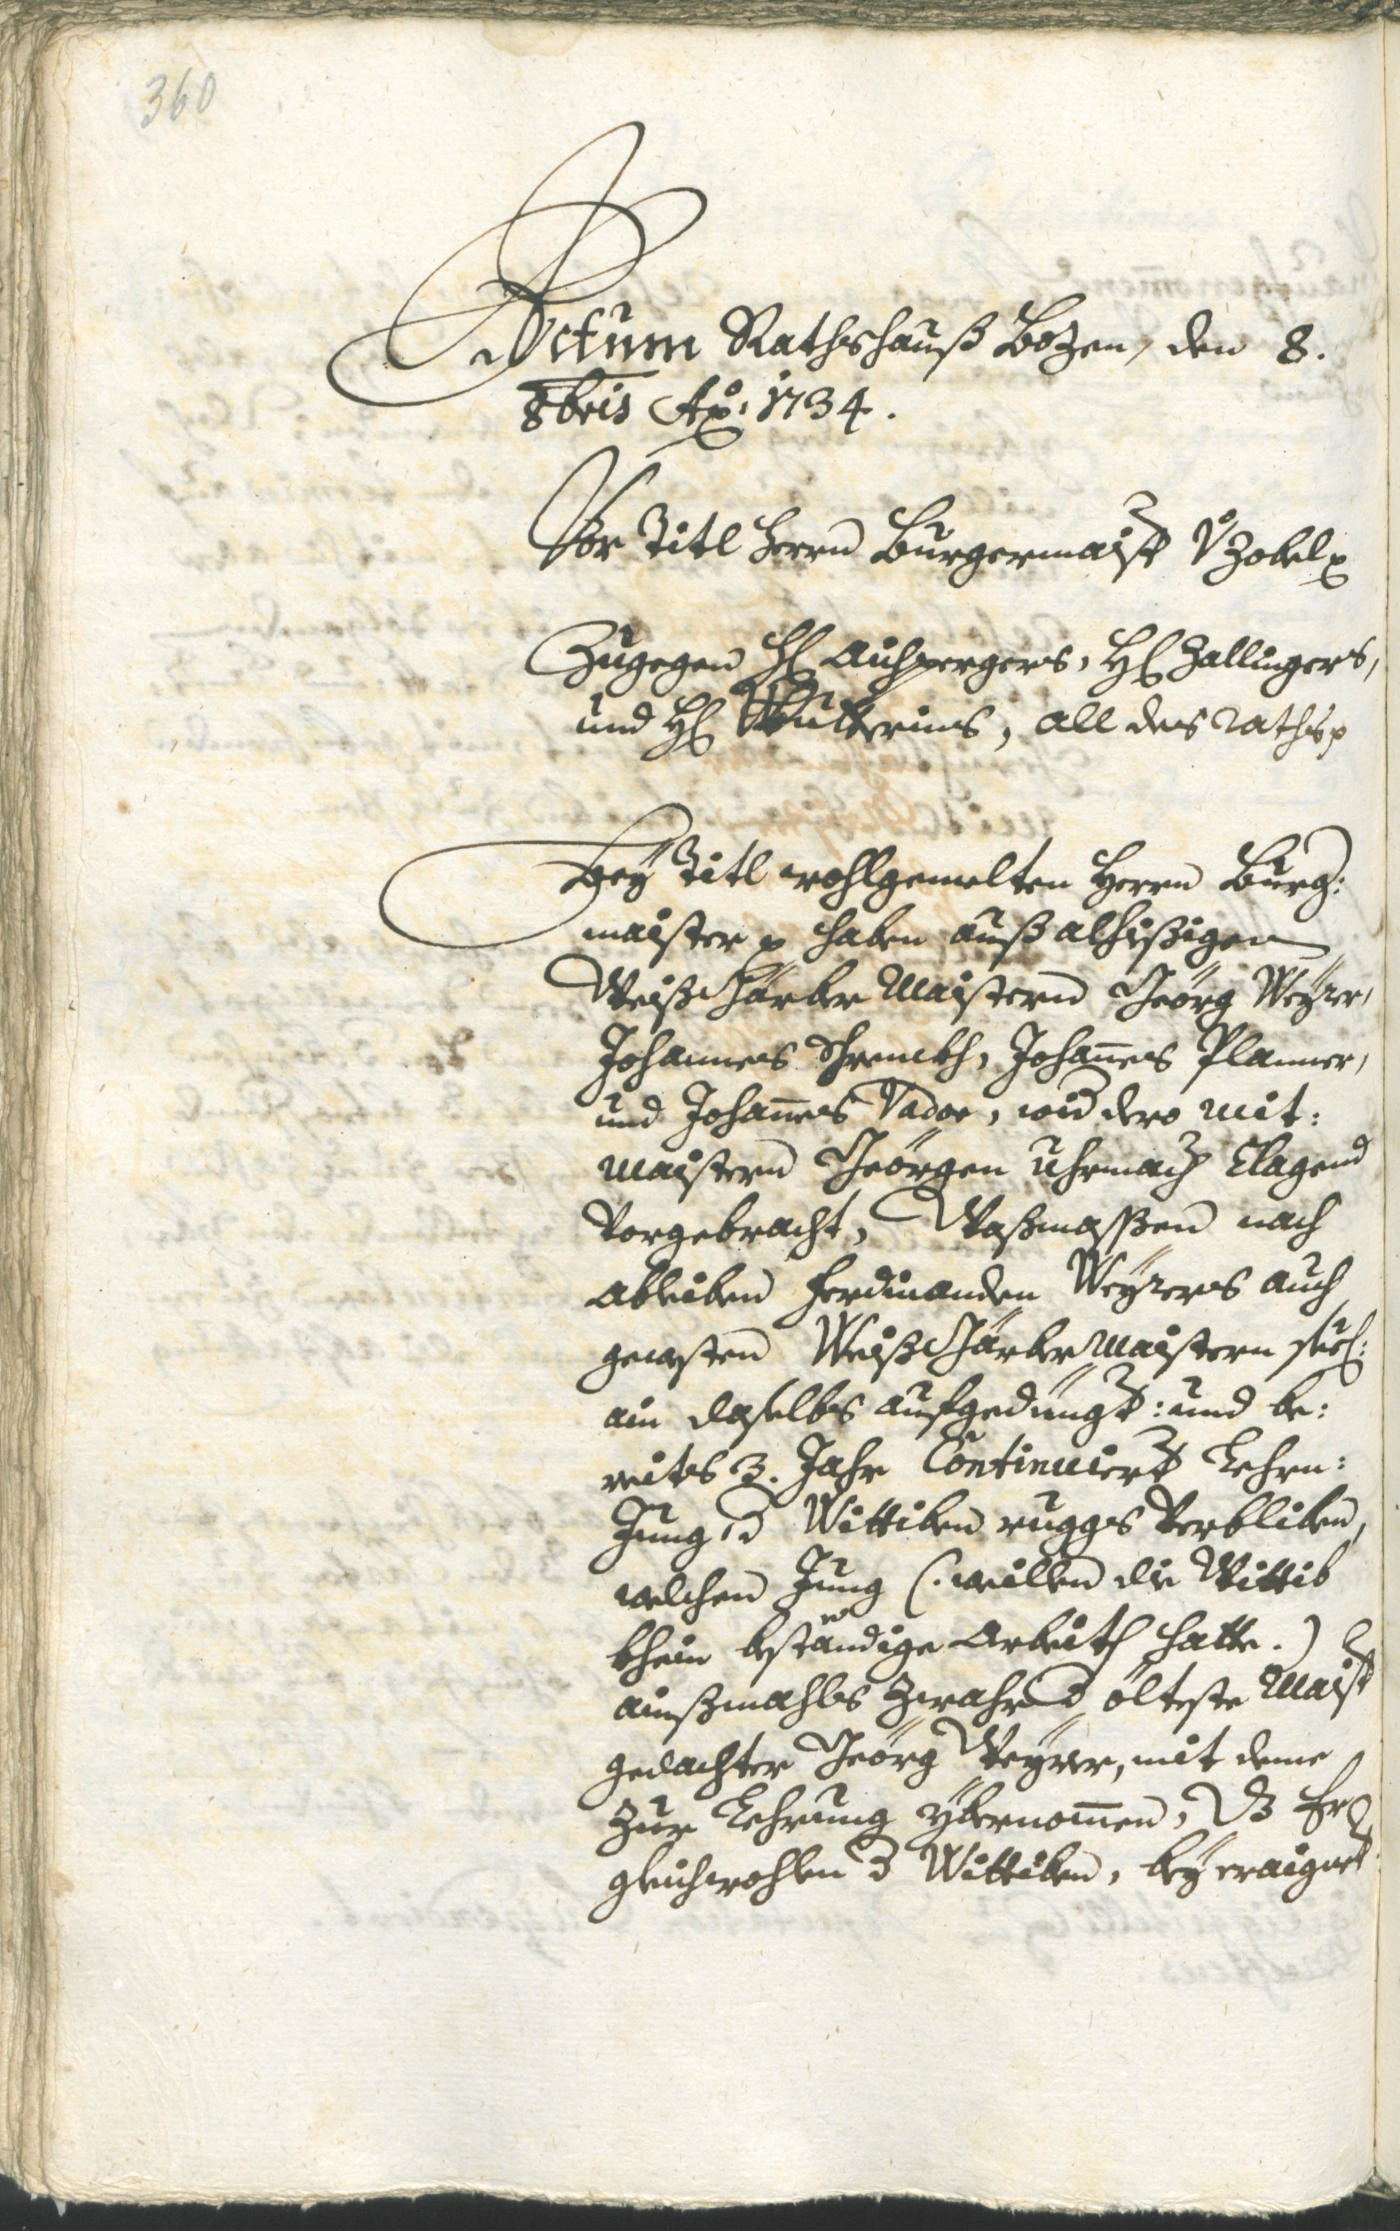 360
Actum Rathshauß Bozen, den 8.
8bris Ao: 1734.
Vor Titl Herrn Burgermaister v Zobel p
Zugegen H: Aufpergers, H: Zallingers,
und H: Gumerins, all des raths p
Bey Titl wohlgemelten Herrn Burg:
maister p haben auß alhießigen
Weißgärber Maistern Geörg Weyrer,
Johannes Schrenckh, Johannes Planner,
und Johannes Vador, wider dero mit:
maistern Geörgen Uhrmacher Clagend
vorgebracht, Waßmassen nach
ableiben Ferdinanden Weyrers auch
gewesten Weißgärber Maistern seel:
ain daselbs aufgedungter: und be:
reits 3. Jahr Continuierter Lehrn:
Jung, der Wittiben ruggs verbliben,
welchen Jung (: weillen die Wittib
khein beständige Arbeith hatte :)
ainßmahls zwahr der ölteste Maister
gedachter Geörg Weyrer, mit deme
zur Lehrnung ybernommen, daz Er
gleichwohlen der Wittiben, bey eraignet